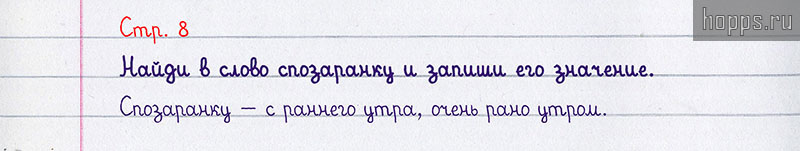 hopps.ru
Стр. 8
Найди в слово спозаранку и запиши его значение.
Спозаранку — с раннего утра, очень рано утром.